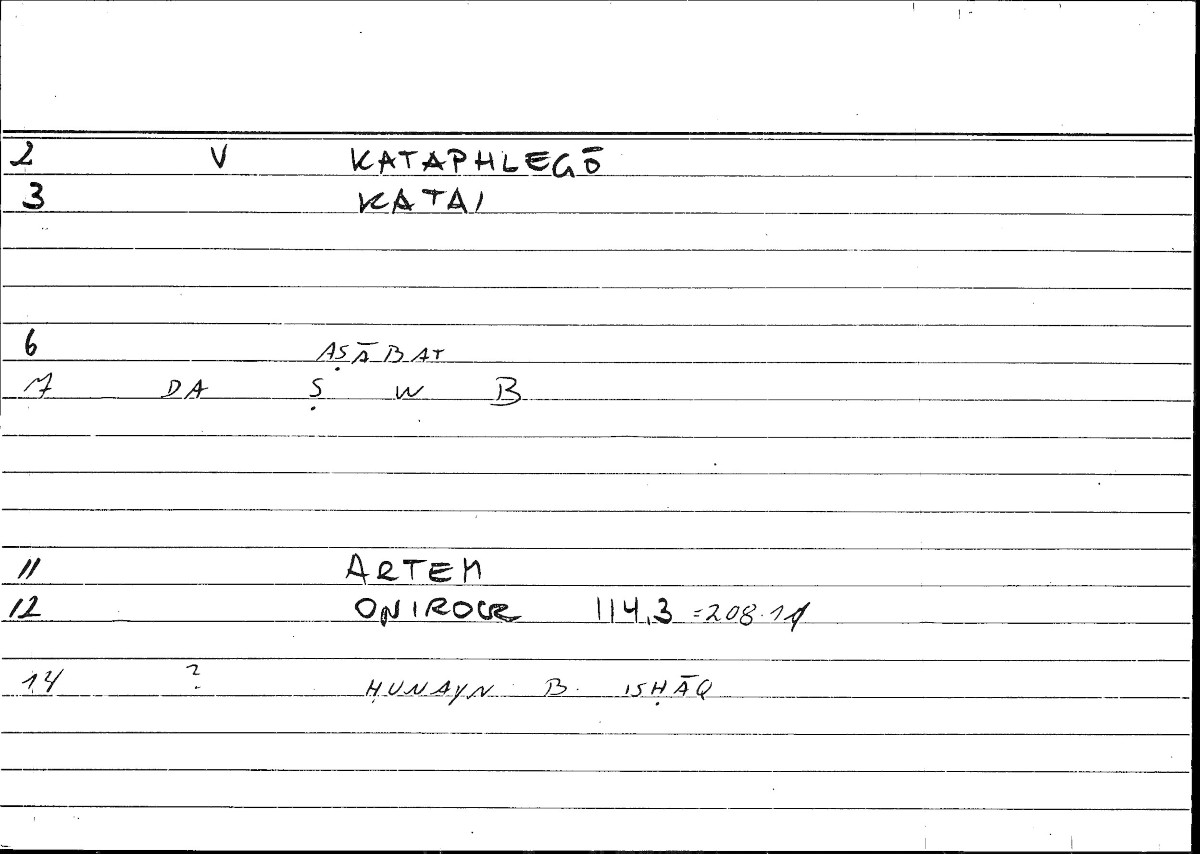 2 V KATAPHLEGŌ
3 KATAI
6 AṢĀBAT
7 DA Ṣ W B
11 ARTEM
12 ONIROCR 114,3 =208.11
14 ? ḤUNAYN B. ISḤĀQ